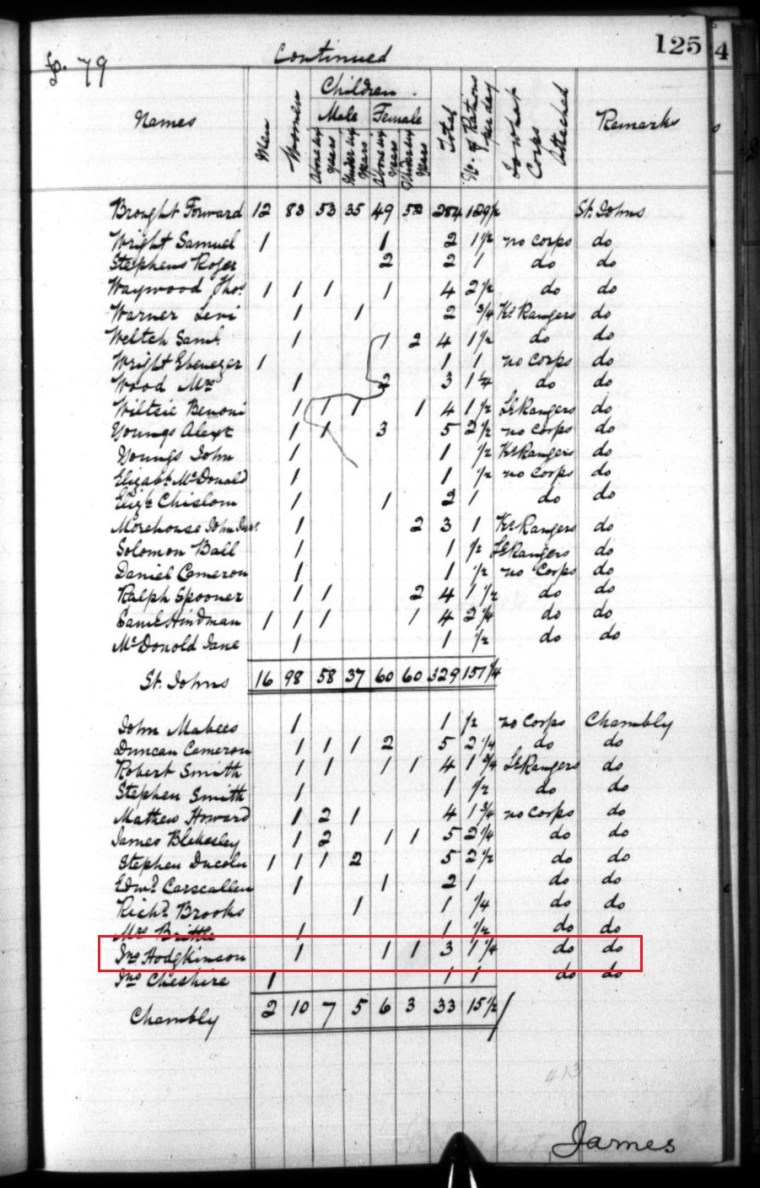 Lp. 79 Continued 125 4
Children
Names Men Women Male Female Total No. of Rations per day To what Corps Attached Remarks
Above six years Under six years Above six years Under six years
Brought Forward 12 83 53 35 49 52 284 129 1/2 St. Johns
Wright Samuel 1 1 2 1 1/2 no corps do
Stephens Roger 2 2 1 do do
Waywood Thos. 1 1 1 1 4 2 1/2 do do
Warner Levi 1 1 2 3/4 Ks Rangers do
Weltch Saml. 1 1 2 4 1 1/2 do do
Wright Ebenezer 1 1 1 no corps do
Wood Mrs 1 2 3 1 1/4 do do
Wiltsie Benoni 1 1 1 1 4 1 1/2 Ls Rangers do
Youngs Alexr 1 1 3 5 2 1/2 no corps do
Youngs John 1 1 1/2 Ks Rangers do
Elizabt. McDonald 1 1 1/2 no corps do
Elizt. Chislom 1 1 2 1 do do
Morehouse John Junr. 1 2 3 1 Ks Rangers do
Solomon Ball 1 1 1/2 Ls Rangers do
Daniel Cameron 1 1 1/2 no Corps do
Ralph Spooner 1 1 2 4 1 1/2 do do
Hindman 1 1 1 1 4 2 1/4 do do
McDonold Jane 1 1 1/2 do do
St. Johns 16 98 58 37 60 60 329 151 1/4
John Mabees 1 1 1/2 no Corps Chambly
Duncan Cameron 1 1 1 2 5 2 1/4 do do
Robert Smith 1 1 1 1 4 1 3/4 Ls Rangers do
Stephen Smith 1 1 1/2 do do
Mathew Howard 1 2 1 4 1 3/4 no corps do
James Blakesley 1 2 1 1 5 2 1/4 do do
Stephen Ducoln 1 1 1 2 5 2 1/2 do do
Edwd. Carscallen 1 1 2 1 do do
Richd. Brooks 1 1 1/4 do do
Mrs Brittle 1 1 1/2 do do
Jno Hodgkinson 1 1 1 3 1 1/4 do do
Jno Cheshire 1 1 1 do do
Chambly 2 10 7 5 6 3 33 15 1/2
413
James